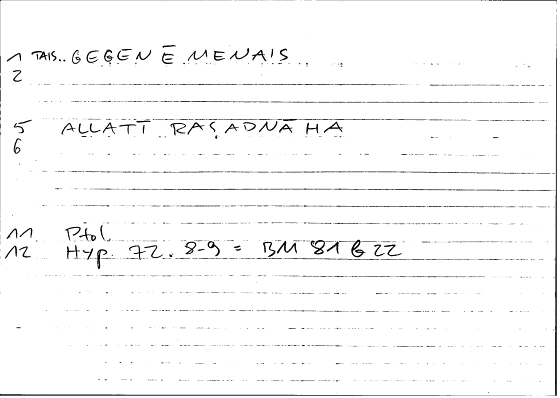 1 TAIS.. GEGENĒMENAIS
2
5 ALLATĪ RAṢADNĀHĀ
6
11 Ptol.
12 Hyp. 72. 8-9 = BM 81 b 22